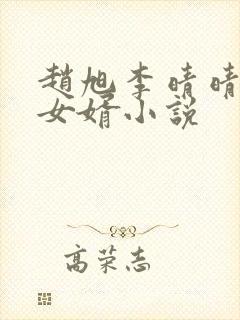 趙旭李晴晴
女婿小説
高荣志